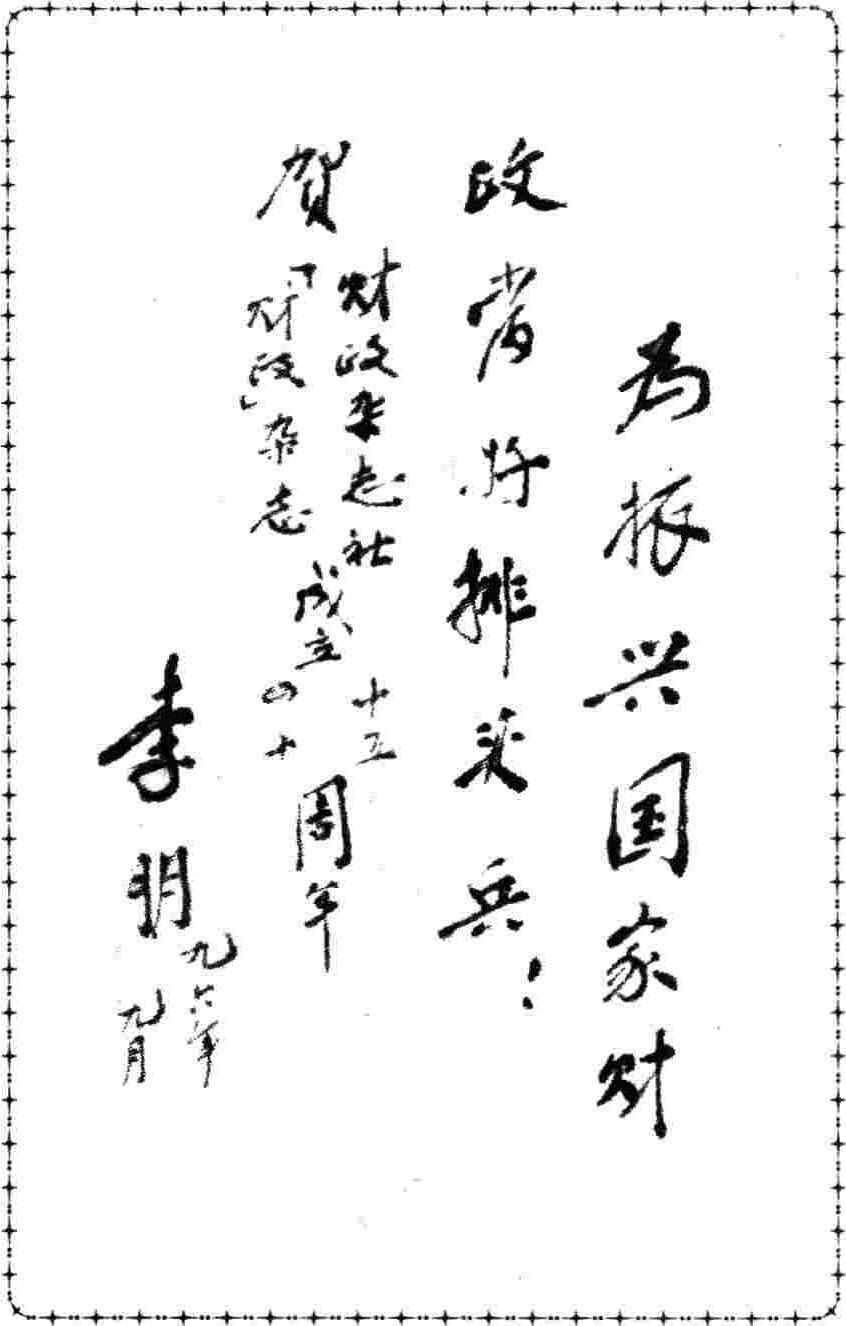 为振兴国家财
政当好排头兵！
贺
财政杂志社
「财政」杂志
成立
十五
四十
周年
李朋
九六年
九月